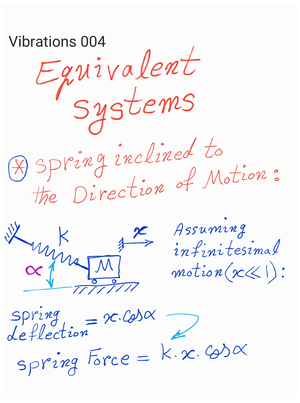 Vibrations 004
Equivalent
Systems
* Spring inclined to
the Direction of Motion:
K
α
M
x
Assuming
infinitesimal
motion (x≪1):
spring
deflection = x.cosα
spring Force = K.x.cosα